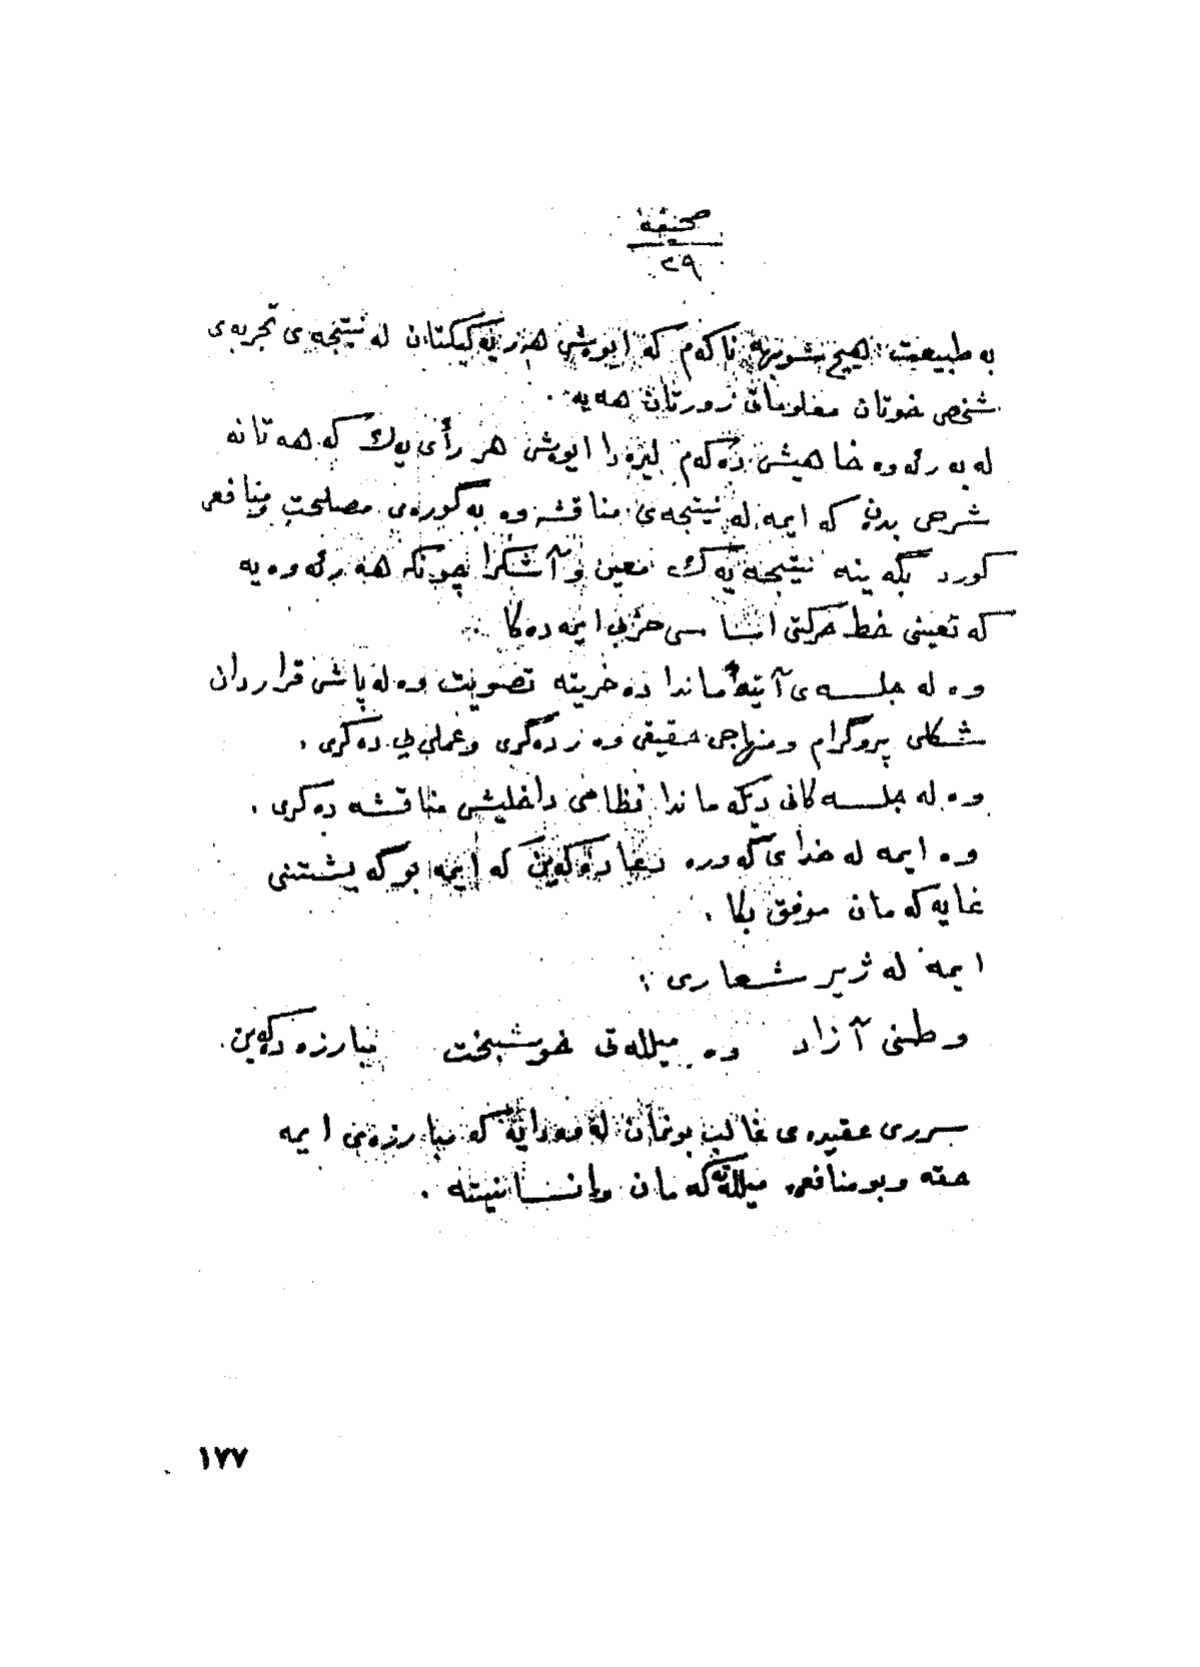 صحیفه
٢٩
به طبیعیت هیچ شوبهه ناکەم که ایوەش هەر یەکیکتان له نتیجەی تجربەی
شخصی خوتان معلوماتی زورتان هەیه .
له بەر ئەوە خاهیش دەکەم لیرەدا ایوەش هر رأی یەك که هەتانه
شرحی بدن که ایمه له نتیجەی مناقشەوە به گورەی مصلحت و منافعی
کورد بگەینه نتیجەیەك معین و آشکرا چونکه هەر ئەوەیه
که تعینی خط حرکتی اساسی حزبی ایمه دەکا .
وە له جلسەی آتیەماندا دەخریته تصویت وە له پاش قراردان
شکلی پروگرام و منهاجی حقیقی وەردەگری و عملی پی دەکری .
وە له جلسەکانی دیکەماندا نظامی داخلیش مناقشه دەکری .
وە ایمه له خدای گەورە دعا دەکەین که ایمه بو گەیشتنی
غایەکەمان موفق بکا .
ایمه له ژیر شعاری :
وطنی آزاد وە میللەتی خوشبخت مبارزە دەکەین .
سرری عقیدەی غالب بونمان لەوەدایه که مبارزەی ایمه
حقه و بو منافعی میللەتەکەمان و انسانیته .
١٧٧